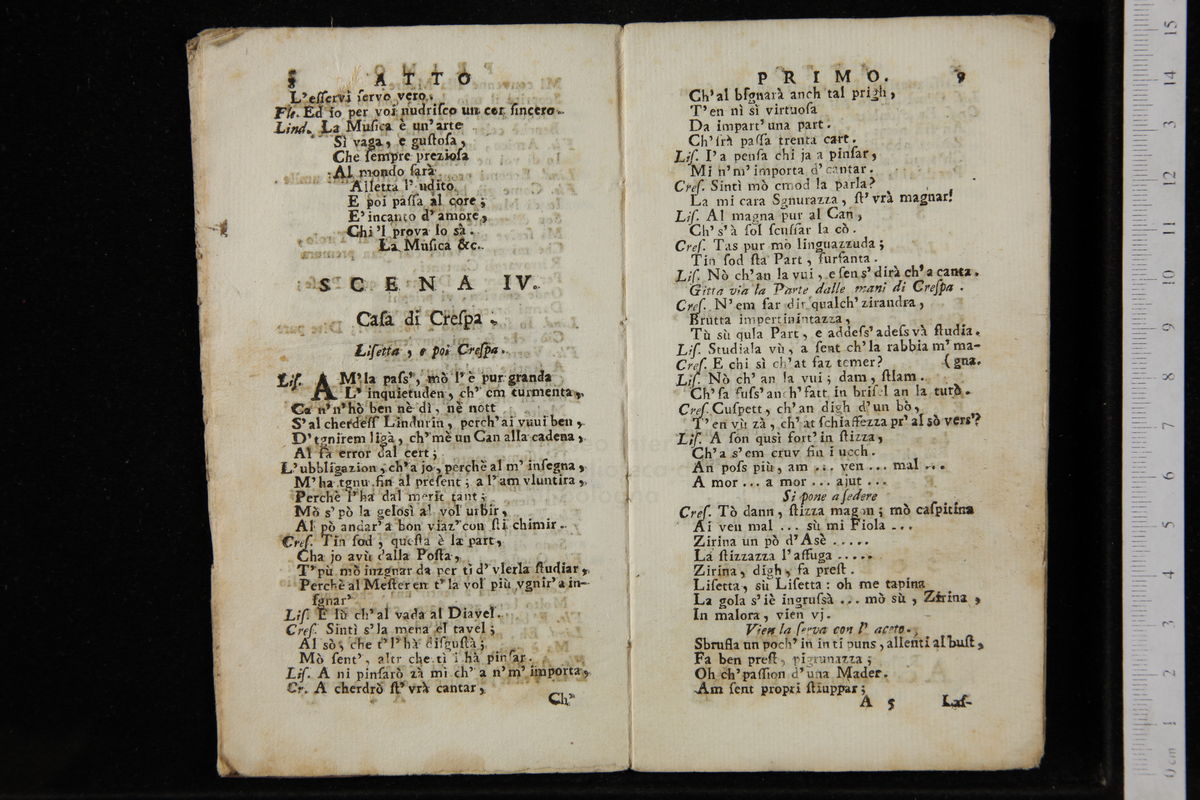 8 ATTO
L'eſſervi ſervo vero.
Flo. Ed io per voi nudriſco un cor ſincero.
Lind. La Muſica è un'arte
Sì vaga, e guſtoſa,
Che ſempre prezioſa
Al mondo ſarà.
Alletta l'udito,
E poi paſſa al core;
E' incanto d'amore,
Chi 'l prova lo sà.
La Muſica &c.
SCENA IV.
Caſa di Creſpa.
Liſetta, e poi Creſpa.
Liſ. AM'la paſs', mò l'è pur granda
L'inquietuden, ch'em turmenta,
Ca n'n'hò ben nè dì, nè nott
S'al cherdeſſ Lindurin, perch'ai vuui ben,
D'tgnirem ligà, ch'mè un Can alla cadena,
Al fà error dal cert;
L'ubbligazion, ch'a jo, perchè al m'inſegna,
M'ha tgnu fin al preſent; a l'am vluntira,
Perchè l'ha dal merit tant;
Mò s'pò la geloſì al vol urbir,
Al pò andar'a bon viaz'con ſti chimir.
Creſ. Tin ſod, queſta è la part,
Cha jo avù dalla Poſta,
T'pù mò inzgnar da per tì d'vlerla ſtudiar,
Perchè al Meſter en t'la vol più vgnir'a in-
ſgnar'
Liſ. E lù ch'al vada al Diavel.
Creſ. Sintì s'la mena el tavel;
Al sò, che t'l'hà diſguſtà;
Mò ſent', altr che tì i hà pinſar.
Liſ. A ni pinſarò zà mi ch'a n'm'importa,
Cr. A cherdrò ſt'vrà cantar,
Ch'
PRIMO. 9
Ch'al bſgnarà anch tal prigh,
T'en nì sì virtuoſa
Da impart'una part.
Ch'ſrà paſſa trenta cart.
Liſ. I'a penſa chi ja a pinſar,
Mi n'm'importa d'cantar.
Creſ. Sintì mò cmod la parla?
La mi cara Sgnurazza, ſt'vrà magnar!
Liſ. Al magna pur al Can,
Ch's'à ſol ſcuſſar la cò.
Creſ. Tas pur mò linguazzuda;
Tin ſod ſta Part, furfanta.
Liſ. Nò ch'an la vui, e ſen s'dirà ch'a canta.
Gitta via la Parte dalle mani di Creſpa.
Creſ. N'em far dir qualch'zirandra,
Brutta impertinintazza,
Tù sù qula Part, e addeſs'adeſs và ſtudia.
Liſ. Studiala vù, a ſent ch'la rabbia m'ma-
Creſ. E chi sì ch'at faz temer? (gna.
Liſ. Nò ch'an la vui; dam, ſtlam.
Ch'ſa fuſs'anch'fatt in briſel an la turò.
Creſ. Cuſpett, ch'an digh d'un bò,
T'en vù zà, ch'at ſchiaffezza pr'al sò vers'?
Liſ. A ſon qusì fort'in ſtizza,
Ch'a s'em cruv fin i ucch.
An poſs più, am ... ven ... mal ...
A mor ... a mor ... ajut ...
Si pone a ſedere
Creſ. Tò dann, ſtizza magon; mò caſpitina
Ai ven mal ... sù mi Fiola ...
Zirina un pò d'Asè .....
La ſtizzazza l'affuga .....
Zirina, digh, fa preſt.
Liſetta, sù Liſetta: oh me tapina
La gola s'iè ingruſsà ... mò sù, Zirina,
In malora, vien vj.
Vien la ſerva con l'aceto.
Sbruffa un poch'in in ti puns, allenti al buſt,
Fa ben preſt, pigrunazza;
Oh ch'paſſion d'una Mader.
Am ſent propri ſtiuppar;
A 5 Laſ-